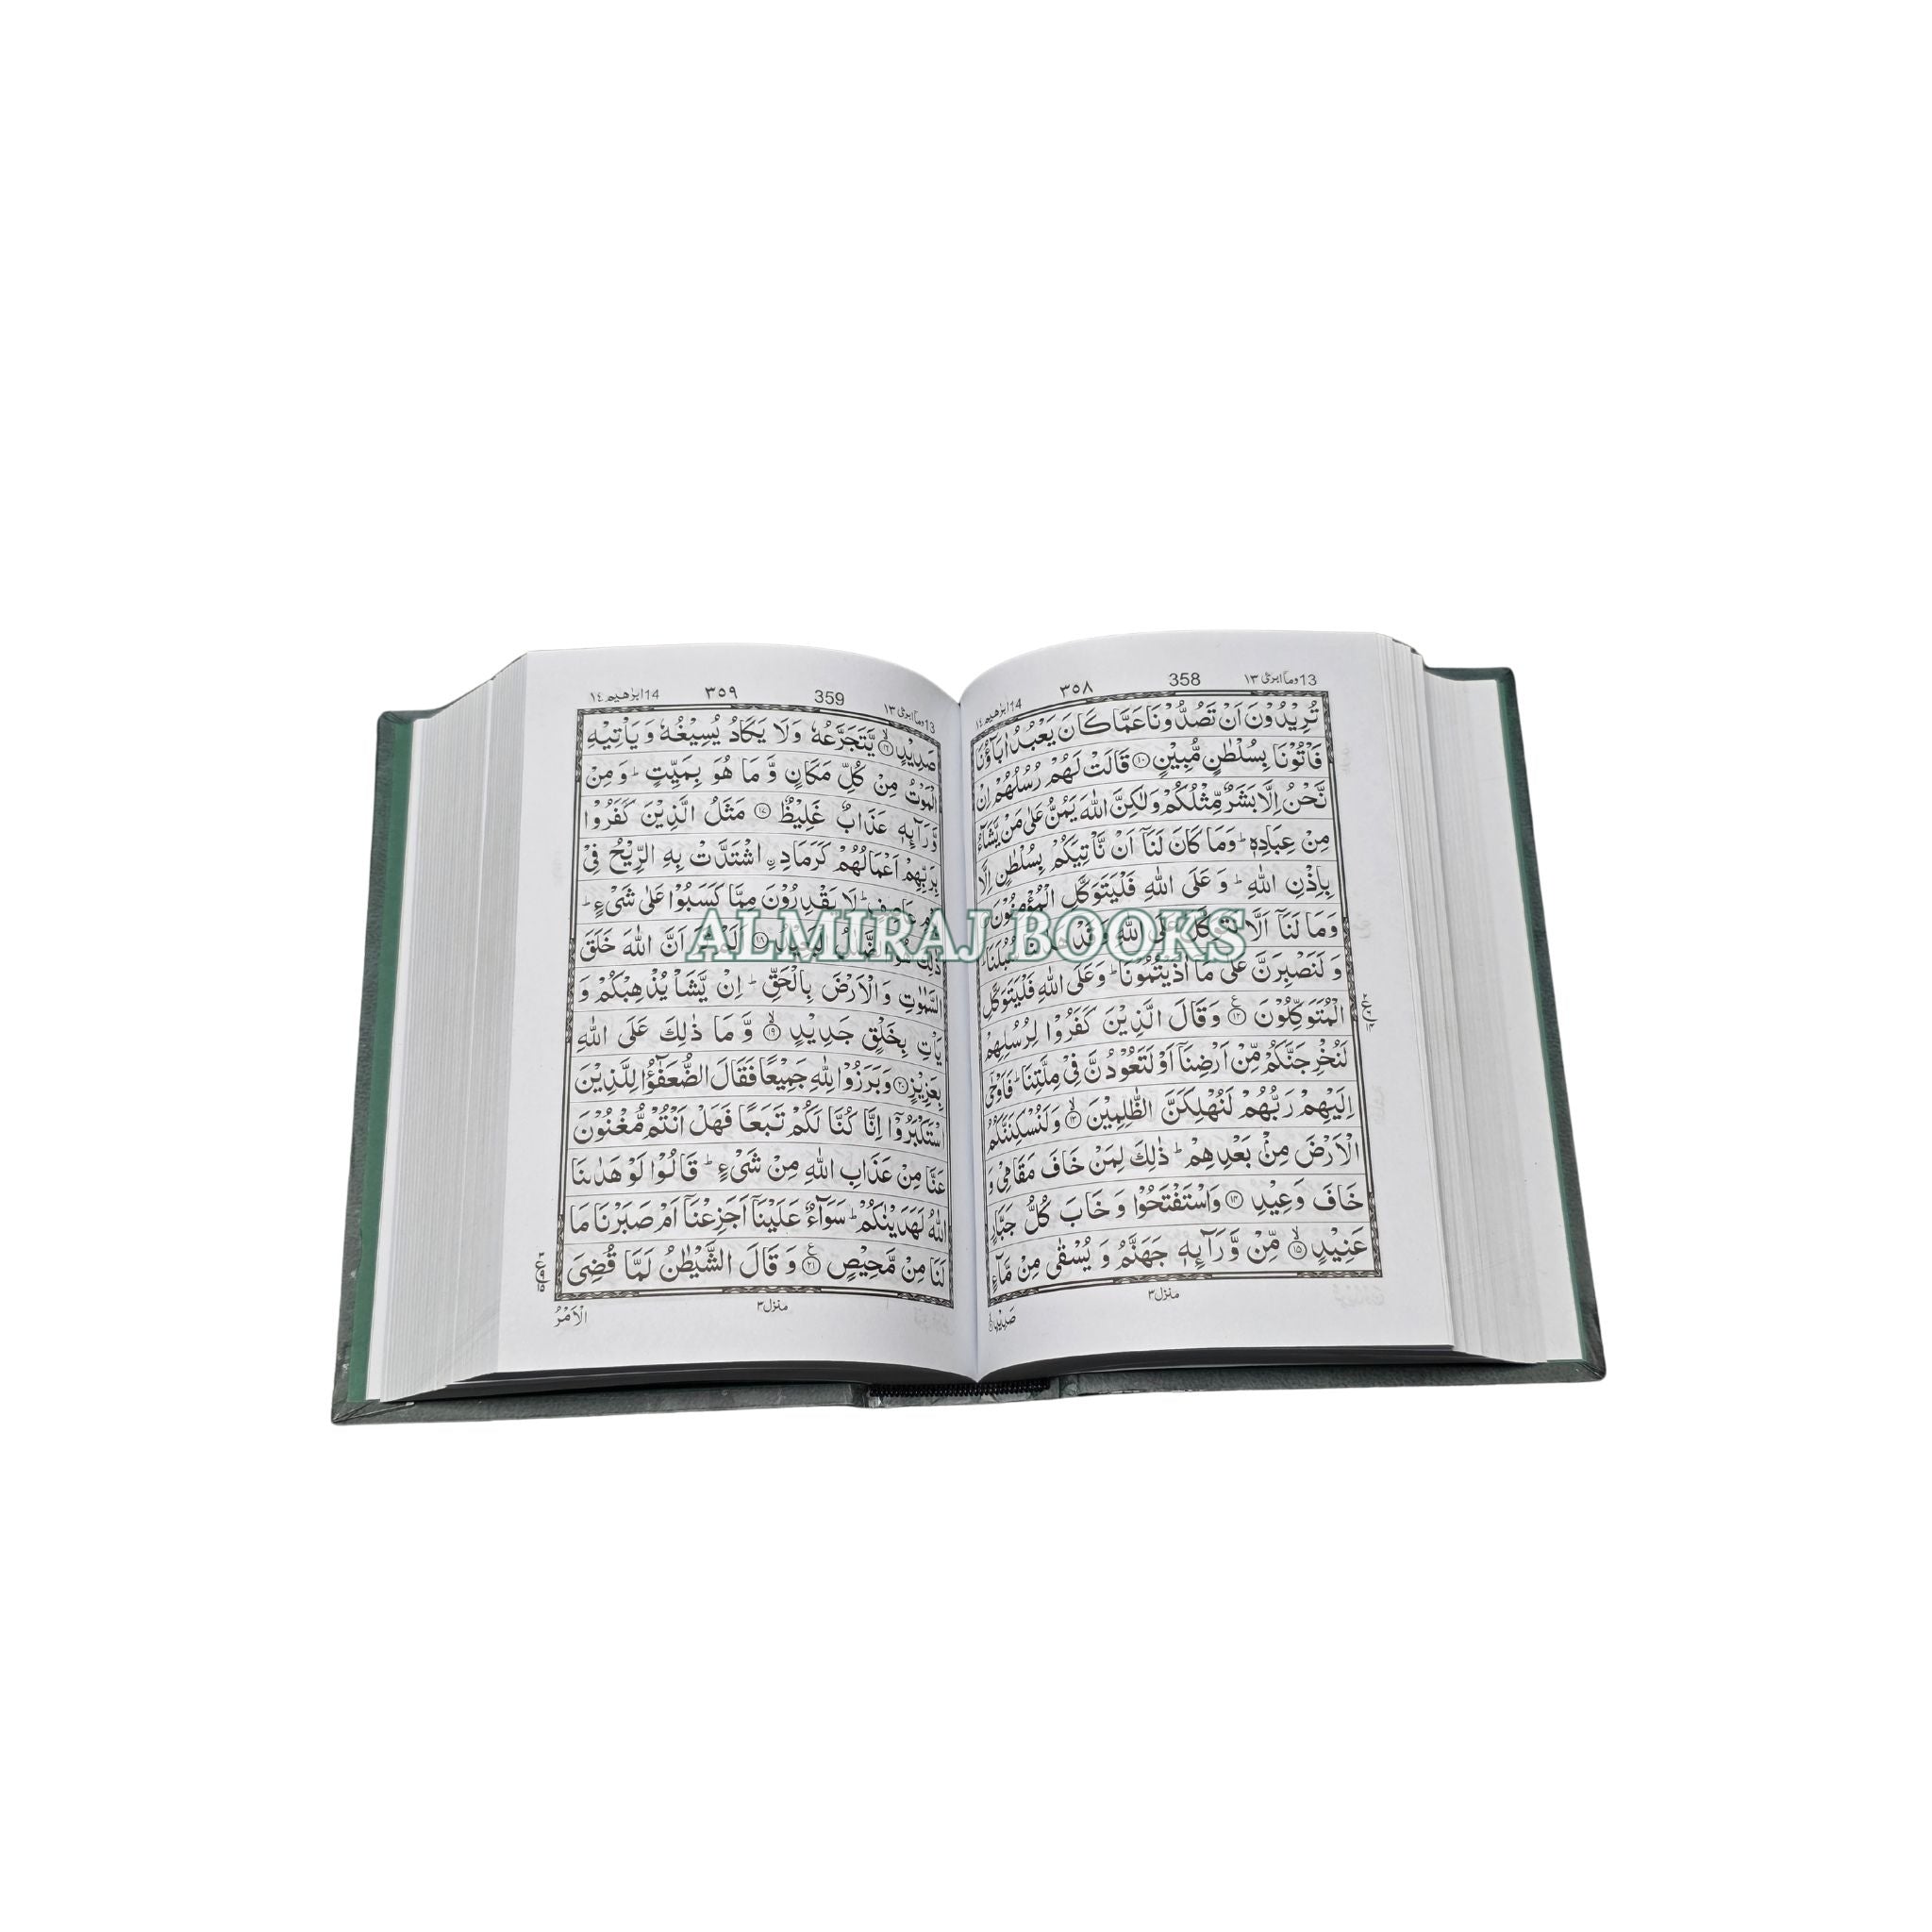 13 وما ابرئ ١٣ 358 ٣٥٨ 14 ابرٰهيم ١٤
تُرِيْدُوْنَ اَنْ تَصُدُّوْنَا عَمَّا كَانَ يَعْبُدُ اٰبَآؤُنَا
فَاْتُوْنَا بِسُلْطٰنٍ مُّبِيْنٍ ١٠ قَالَتْ لَهُمْ رُسُلُهُمْ اِنْ
نَّحْنُ اِلَّا بَشَرٌ مِّثْلُكُمْ وَلٰكِنَّ اللّٰهَ يَمُنُّ عَلٰى مَنْ يَّشَآءُ
مِنْ عِبَادِهٖ ؕ وَمَا كَانَ لَنَاۤ اَنْ نَّاْتِيَكُمْ بِسُلْطٰنٍ اِلَّا
بِاِذْنِ اللّٰهِ ؕ وَ عَلَى اللّٰهِ فَلْيَتَوَكَّلِ الْمُؤْمِنُوْنَ
وَمَا لَنَاۤ اَلَّا نَتَوَكَّلَ عَلَى اللّٰهِ وَقَدْ هَدٰىنَا سُبُلَنَا ؕ
وَ لَنَصْبِرَنَّ عَلٰى مَاۤ اٰذَيْتُمُوْنَا ؕ وَعَلَى اللّٰهِ فَلْيَتَوَكَّلِ
الْمُتَوَكِّلُوْنَ ١٢ وَقَالَ الَّذِيْنَ كَفَرُوْا لِرُسُلِهِمْ
لَنُخْرِجَنَّكُمْ مِّنْ اَرْضِنَاۤ اَوْ لَتَعُوْدُنَّ فِيْ مِلَّتِنَا ؕ فَاَوْحٰۤى
اِلَيْهِمْ رَبُّهُمْ لَنُهْلِكَنَّ الظّٰلِمِيْنَ ١٣ وَ لَنُسْكِنَنَّكُمُ
الْاَرْضَ مِنْۢ بَعْدِهِمْ ؕ ذٰلِكَ لِمَنْ خَافَ مَقَامِيْ وَ
خَافَ وَعِيْدِ ١٤ وَاسْتَفْتَحُوْا وَ خَابَ كُلُّ جَبَّارٍ
عَنِيْدٍ ١٥ مِّنْ وَّرَآىِٕهٖ جَهَنَّمُ وَ يُسْقٰى مِنْ مَّآءٍ
منزل ٣
صَدِيْدٍ
13 وما ابرئ ١٣ 359 ٣٥٩ 14 ابرٰهيم ١٤
صَدِيْدٍ ١٦ يَّتَجَرَّعُهٗ وَلَا يَكَادُ يُسِيْغُهٗ وَ يَاْتِيْهِ
الْمَوْتُ مِنْ كُلِّ مَكَانٍ وَّ مَا هُوَ بِمَيِّتٍ ؕ وَمِنْ
وَّرَآىِٕهٖ عَذَابٌ غَلِيْظٌ ١٧ مَثَلُ الَّذِيْنَ كَفَرُوْا
بِرَبِّهِمْ اَعْمَالُهُمْ كَرَمَادِ اۨشْتَدَّتْ بِهِ الرِّيْحُ فِيْ
يَوْمٍ عَاصِفٍ ؕ لَا يَقْدِرُوْنَ مِمَّا كَسَبُوْا عَلٰى شَيْءٍ ؕ
ذٰلِكَ هُوَ الضَّلٰلُ الْبَعِيْدُ ١٨ اَلَمْ تَرَ اَنَّ اللّٰهَ خَلَقَ
السَّمٰوٰتِ وَالْاَرْضَ بِالْحَقِّ ؕ اِنْ يَّشَاْ يُذْهِبْكُمْ وَ
يَاْتِ بِخَلْقٍ جَدِيْدٍ ١٩ وَّ مَا ذٰلِكَ عَلَى اللّٰهِ
بِعَزِيْزٍ ٢٠ وَبَرَزُوْا لِلّٰهِ جَمِيْعًا فَقَالَ الضُّعَفٰٓؤُا لِلَّذِيْنَ
اسْتَكْبَرُوْۤا اِنَّا كُنَّا لَكُمْ تَبَعًا فَهَلْ اَنْتُمْ مُّغْنُوْنَ
عَنَّا مِنْ عَذَابِ اللّٰهِ مِنْ شَيْءٍ ؕ قَالُوْا لَوْ هَدٰىنَا
اللّٰهُ لَهَدَيْنٰكُمْ ؕ سَوَآءٌ عَلَيْنَاۤ اَجَزِعْنَاۤ اَمْ صَبَرْنَا مَا
لَنَا مِنْ مَّحِيْصٍ ٢١ وَ قَالَ الشَّيْطٰنُ لَمَّا قُضِيَ
منزل ٣
الْاَمْرُ
ALMIRAJ BOOKS